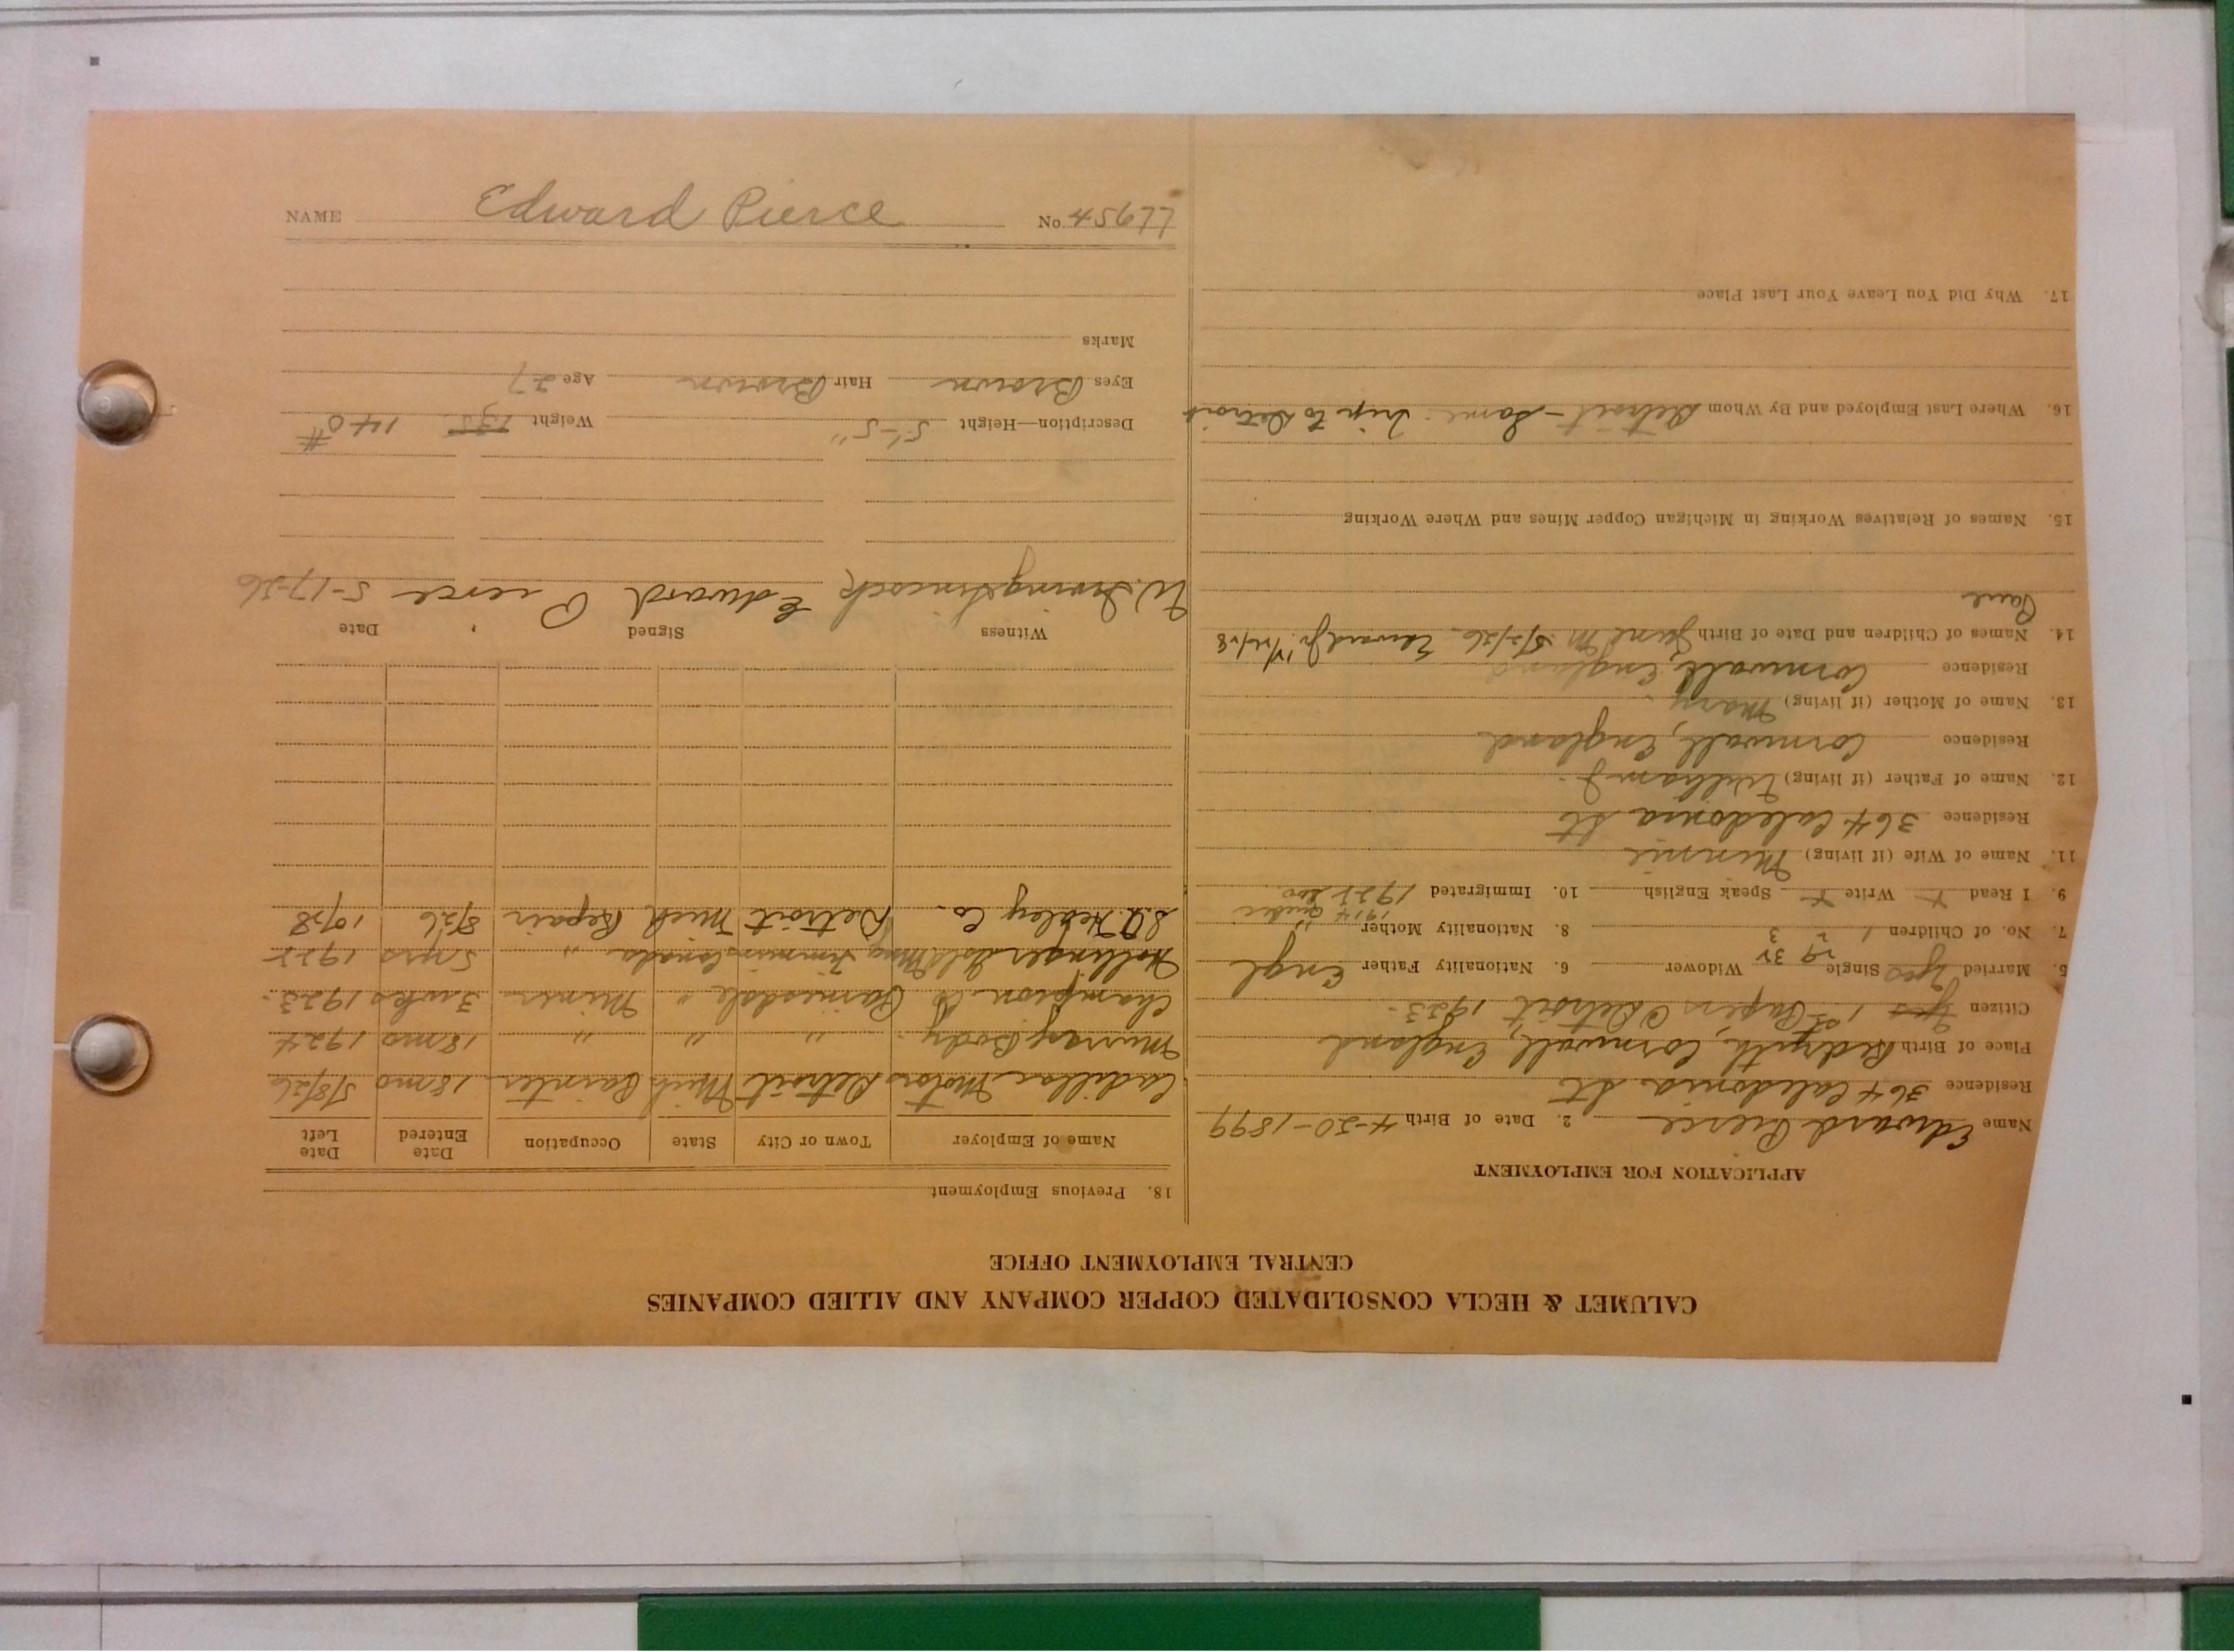 CALUMET & HECLA CONSOLIDATED COPPER COMPANY AND ALLIED COMPANIES
CENTRAL EMPLOYMENT OFFICE
APPLICATION FOR EMPLOYMENT
Name Edward Pierce 2. Date of Birth 4-30-1899
Residence 364 Caledonia St
Place of Birth Redruth, Cornwall, England
Citizen Yes 1st Papers Detroit 1923.
5. Married Yes Single Widower 6. Nationality Father Engl
7. No. of Children 1 2 3 8. Nationality Mother "
1914 Quebec
9. I Read x Write x Speak English 10. Immigrated 1922 Soo
11. Name of Wife (if living) Minnie
Residence 364 Caledonia St
12. Name of Father (if living) William J.
Residence Cornwall, England
13. Name of Mother (if living) Mary
Residence Cornwall, England
14. Names of Children and Date of Birth June M. 5/2/26 Edward Jr.
15. Names of Relatives Working in Michigan Copper Mines and Where Working
16. Where Last Employed and By Whom Detroit - Same - Trip to Detroit
17. Why Did You Leave Your Last Place
18. Previous Employment
Name of Employer Town or City State Occupation Date Entered Date Left
Cadillac Motors Detroit Mich Painter 18 mo 5/8/26
Murray Body " " " 18 mo 1924
Champion Co Painesdale " Miner 3 wks 1923.
Hollinger Gold Mng Timmins Canada " 5 yrs 1922
Healey Co. Detroit Mich Repair 8/26 10/28
Witness Signed Date
W. Irving Edward Pierce 5-17-26
Description—Height 5'-5" Weight 135 140#
Eyes Brown Hair Brown Age 27
Marks
NAME Edward Pierce No. 45677